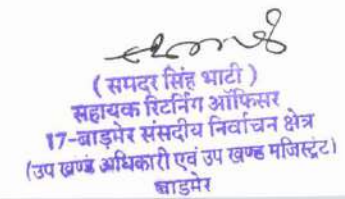 ( समदर सिंह भाटी )
सहायक रिटर्निंग ऑफिसर
17-बाड़मेर संसदीय निर्वाचन क्षेत्र
(उप खण्ड अधिकारी एवं उप खण्ड मजिस्ट्रेट)
बाडमेर